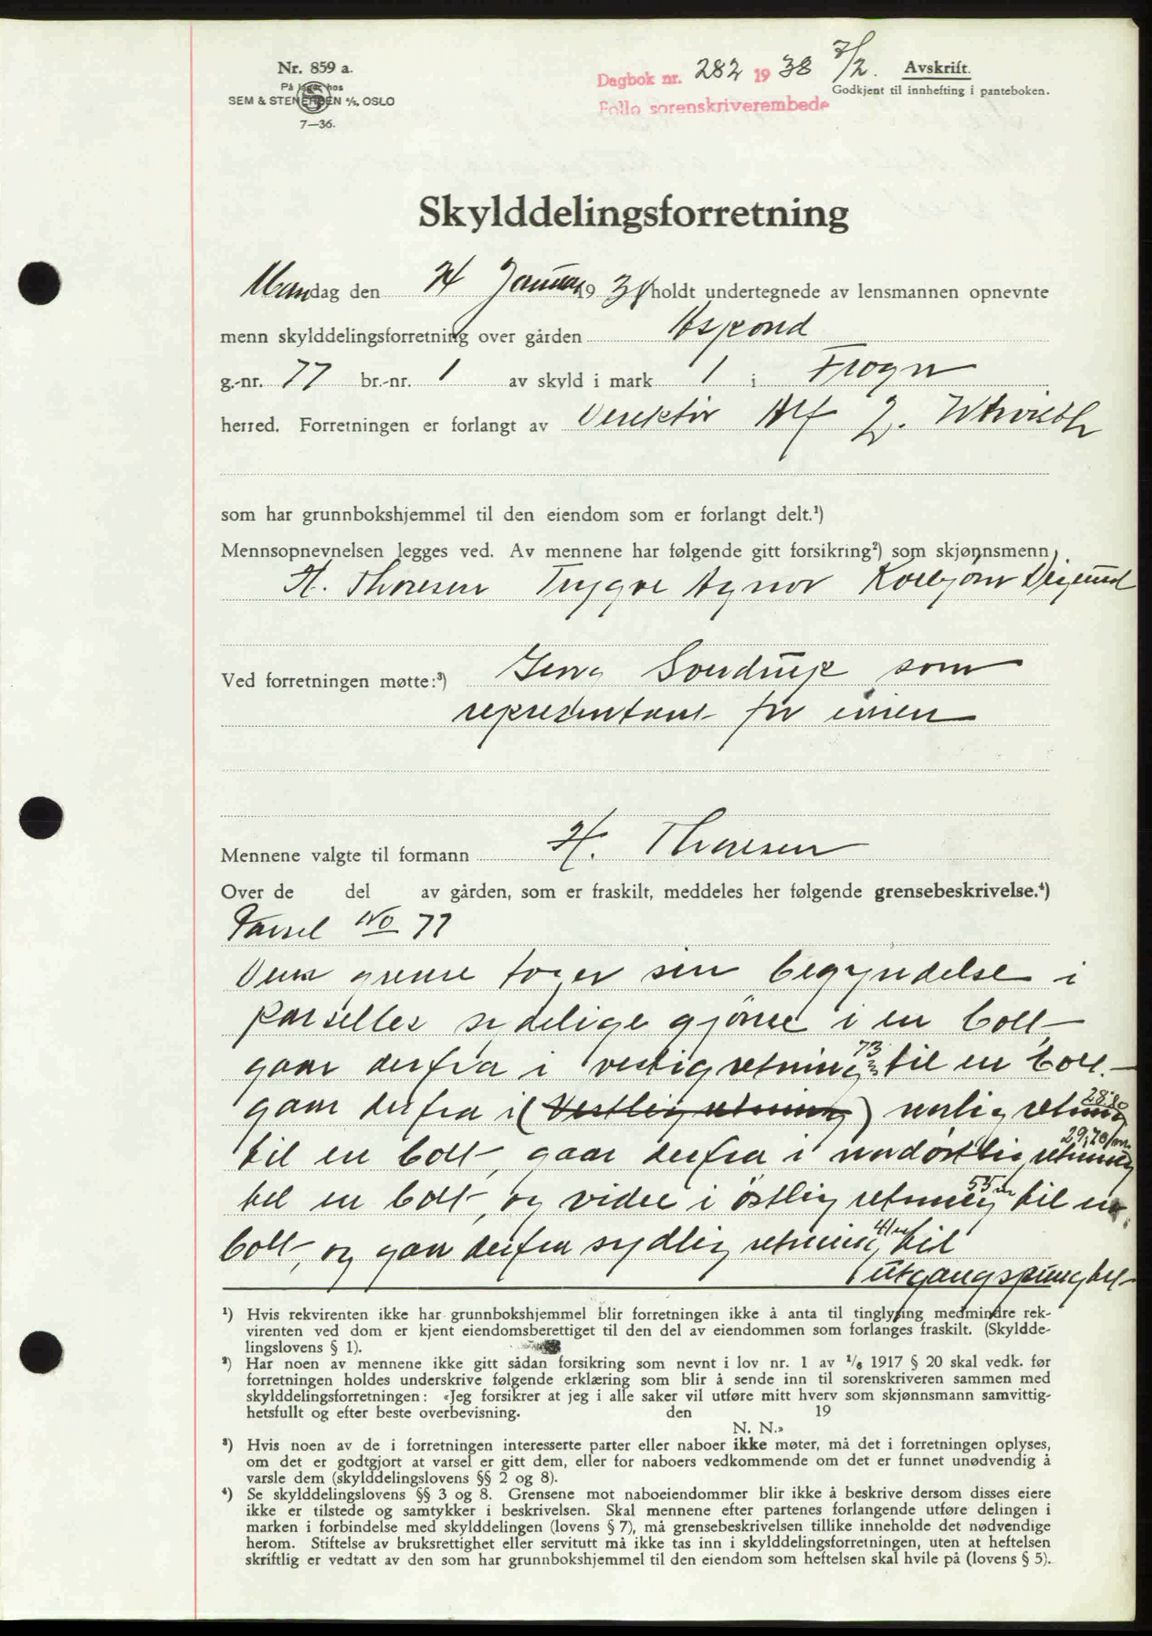 Nr. 859 a.
På lager hos
SEM & STENERSEN A/S, OSLO
7—36.
Dagbok nr. 282 1938 7/2.
Follo sorenskriverembede
Avskrift.
Godkjent til innhefting i panteboken.
Skylddelingsforretning
Mandag den 24 Januar 1938 holdt undertegnede av lensmannen opnevnte
menn skylddelingsforretning over gården Askond
g.-nr. 77 br.-nr. 1 av skyld i mark 1 i Frogn
herred. Forretningen er forlangt av Direktör Alf J.
som har grunnbokshjemmel til den eiendom som er forlangt delt.¹)
Mennsopnevnelsen legges ved. Av mennene har følgende gitt forsikring²) som skjønnsmenn
H. Thoresen Trygve Agnor Kolbjørn
Ved forretningen møtte:³) Jens Sverdrup som
representant for eieren
Mennene valgte til formann H. Thoresen
Over de del av gården, som er fraskilt, meddeles her følgende grensebeskrivelse.⁴)
Parsel No 77
Dens grense tager sin begyndelse i
parselles sydelige hjörne i en bolt,
gaar derfra i vestlig retning 73 m til en bolt.
gaar derfra i (Vestlig retning) norlig retning 28.80
til en bolt, gaar derfra i nordöstlig retning 29,70 m
til en bolt, og videre i östlig retning 55 m til en
bolt, og gaar derfra sydlig retning 41 m til
utgangspunghet
¹) Hvis rekvirenten ikke har grunnbokshjemmel blir forretningen ikke å anta til tinglysing medmindre rek-
virenten ved dom er kjent eiendomsberettiget til den del av eiendommen som forlanges fraskilt. (Skyldde-
lingslovens § 1).
²) Har noen av mennene ikke gitt sådan forsikring som nevnt i lov nr. 1 av 1/6 1917 § 20 skal vedk. før
forretningen holdes underskrive følgende erklæring som blir å sende inn til sorenskriveren sammen med
skylddelingsforretningen: «Jeg forsikrer at jeg i alle saker vil utføre mitt hverv som skjønnsmann samvittig-
hetsfullt og efter beste overbevisning. den 19
N. N.»
³) Hvis noen av de i forretningen interesserte parter eller naboer ikke møter, må det i forretningen oplyses,
om det er godtgjort at varsel er gitt dem, eller for naboers vedkommende om det er funnet unødvendig å
varsle dem (skylddelingslovens §§ 2 og 8).
⁴) Se skylddelingslovens §§ 3 og 8. Grensene mot naboeiendommer blir ikke å beskrive dersom disses eiere
ikke er tilstede og samtykker i beskrivelsen. Skal mennene efter partenes forlangende utføre delingen i
marken i forbindelse med skylddelingen (lovens § 7), må grensebeskrivelsen tillike inneholde det nødvendige
herom. Stiftelse av bruksrettighet eller servitutt må ikke tas inn i skylddelingsforretningen, uten at heftelsen
skriftlig er vedtatt av den som har grunnbokshjemmel til den eiendom som heftelsen skal hvile på (lovens § 5).